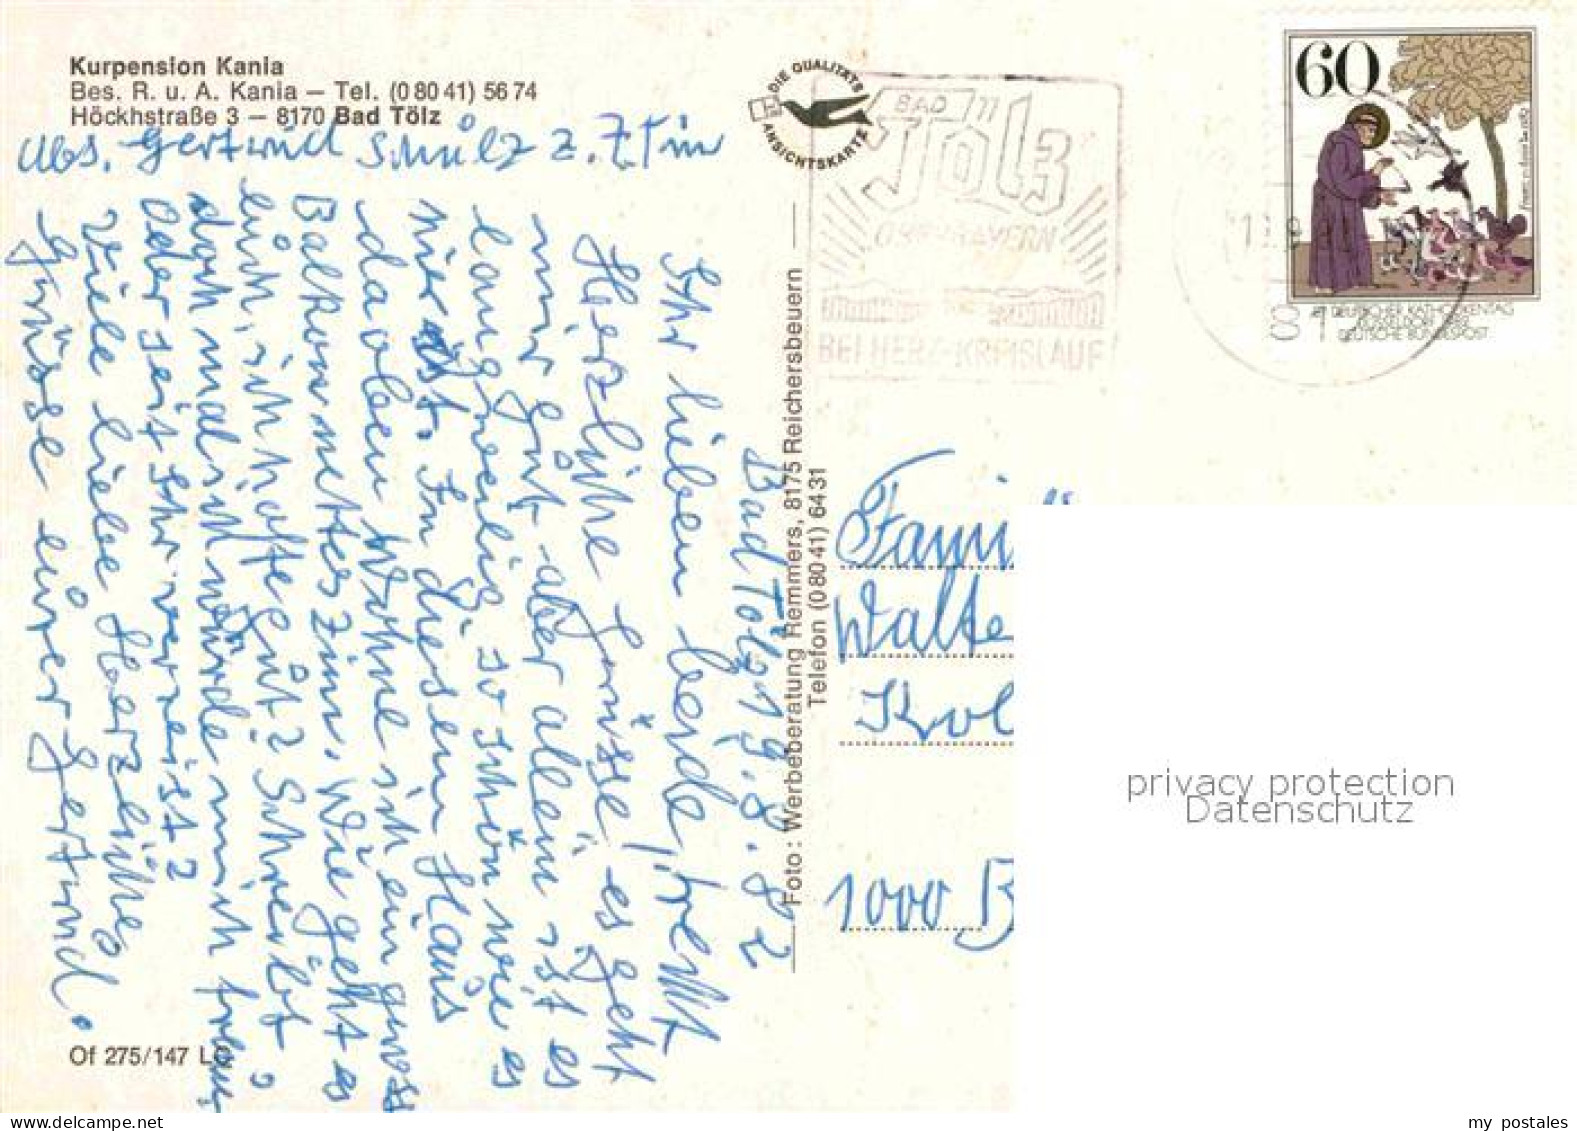 Kurpension Kania
Bes. R. u. A. Kania – Tel. (0 80 41) 56 74
Höckhstraße 3 – 8170 Bad Tölz
Abs. Gertrud Schulz z. Zt in
Bad Tölz 19.8.82
Ihr lieben beide,
Herzliche Grüsse, es geht
mir gut aber allein ist es
langweilig. so schön wie es
hier ist. In diesem Haus
da oben wohne ich ein
Balkon nettes Zim. Wie geht es
euch, ich hoffe gut? Schreibt
doch mal ich würde mich freuen,
oder seit Ihr verreist?
Viele liebe Herzliche
Grüsse eurer Gertrud.
Of 275/147 LC
Foto: Werbeberatung Remmers, 8175 Reichersbeuern
Telefon (0 80 41) 64 31
DIE QUALITÄTS
ANSICHTSKARTE
BAD
Tölz
OBERBAYERN
BEI HERZ-KREISLAUF
81
60
87. DEUTSCHER KATHOLIKENTAG
DÜSSELDORF 1982
DEUTSCHE BUNDESPOST
Fami
Walte
Kol
1000 B
privacy protection
Datenschutz
www.delcampe.net
my_postales